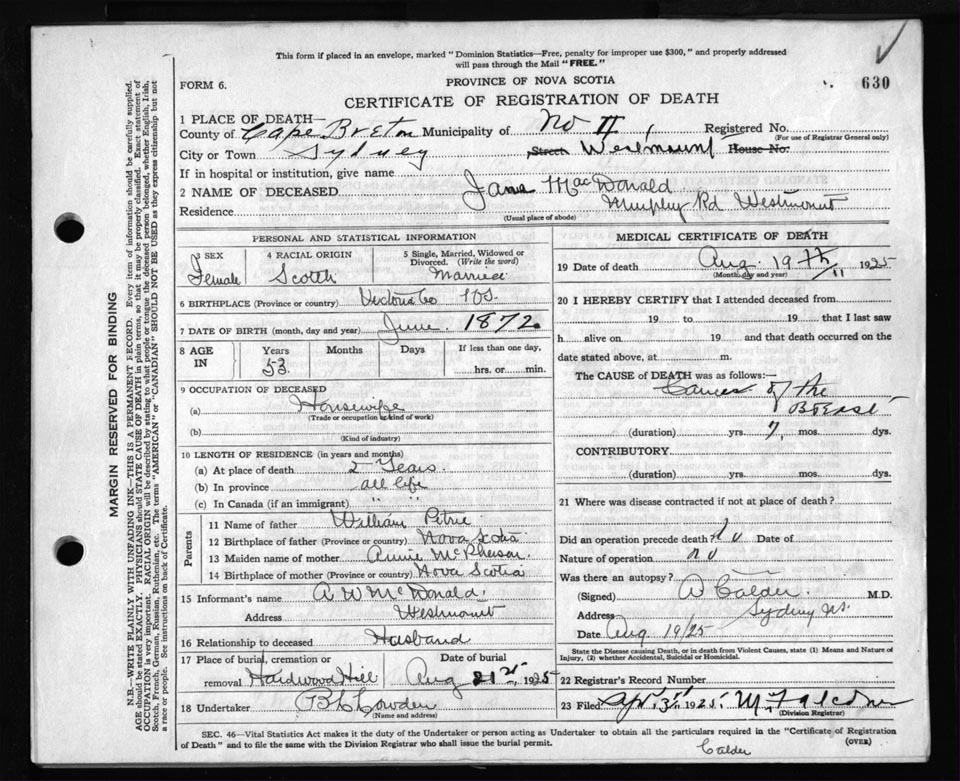 This form if placed in an envelope, marked "Dominion Statistics—Free, penalty for improper use $300," and properly addressed
will pass through the Mail "FREE."
630
FORM 6.
PROVINCE OF NOVA SCOTIA
CERTIFICATE OF REGISTRATION OF DEATH
1 PLACE OF DEATH—
County of Cape Breton Municipality of No II, Registered No.
(For use of Registrar General only)
City or Town Sydney Street Westmount House No.
If in hospital or institution, give name
2 NAME OF DECEASED Jane MacDonald
Residence Murphy Rd Westmount
(Usual place of abode)
PERSONAL AND STATISTICAL INFORMATION
3 SEX Female
4 RACIAL ORIGIN Scotch
5 Single, Married, Widowed or Divorced. (Write the word) Married
6 BIRTHPLACE (Province or country) Victoria Co NS.
7 DATE OF BIRTH (month, day and year) June 1872
8 AGE IN Years 53 Months Days If less than one day, hrs. or min.
9 OCCUPATION OF DECEASED
(a) Housewife
(Trade or occupation or kind of work)
(b)
(Kind of industry)
10 LENGTH OF RESIDENCE (in years and months)
(a) At place of death 2 Years.
(b) In province all life
(c) In Canada (if an immigrant) " "
Parents
11 Name of father William Petrie
12 Birthplace of father (Province or country) Nova Scotia
13 Maiden name of mother Annie McPherson
14 Birthplace of mother (Province or country) Nova Scotia
15 Informant's name A W McDonald
Address Westmount
16 Relationship to deceased Husband
17 Place of burial, cremation or removal Hardwood Hill
Date of burial Aug 21st 1925
18 Undertaker
(Name and address)
MEDICAL CERTIFICATE OF DEATH
19 Date of death Aug. 19th 1925
(Month, day and year)
20 I HEREBY CERTIFY that I attended deceased from
19 to 19 that I last saw
h alive on 19 and that death occurred on the
date stated above, at m.
The CAUSE of DEATH was as follows:—
Cancer of the
Breast
(duration) yrs. 7, mos. dys.
CONTRIBUTORY
(duration) yrs. mos. dys.
21 Where was disease contracted if not at place of death?
Did an operation precede death? No Date of
Nature of operation no
Was there an autopsy?
(Signed) A Calder. M.D.
Address Sydney NS.
Date Aug 19/25
State the Disease causing Death, or in death from Violent Causes, state (1) Means and Nature of
Injury, (2) whether Accidental, Suicidal or Homicidal.
22 Registrar's Record Number
23 Filed 1925.
(Division Registrar)
SEC. 46—Vital Statistics Act makes it the duty of the Undertaker or person acting as Undertaker to obtain all the particulars required in the "Certificate of Registration
of Death" and to file the same with the Division Registrar who shall issue the burial permit.
(OVER)
Calder
MARGIN RESERVED FOR BINDING
N.B.—WRITE PLAINLY WITH UNFADING INK—THIS IS A PERMANENT RECORD. Every item of information should be carefully supplied.
AGE should be stated EXACTLY. PHYSICIANS should STATE CAUSE OF DEATH in plain terms, so that it may be properly classified. Exact statement of
OCCUPATION is very important. RACIAL ORIGIN will be described by stating to what people or tongue the deceased person belonged, whether English, Irish,
Scotch, French, German, Russian, Ruthenian, etc. The terms "AMERICAN" or "CANADIAN" SHOULD NOT BE USED as they express citizenship but not
a race or people. See instructions on back of Certificate.